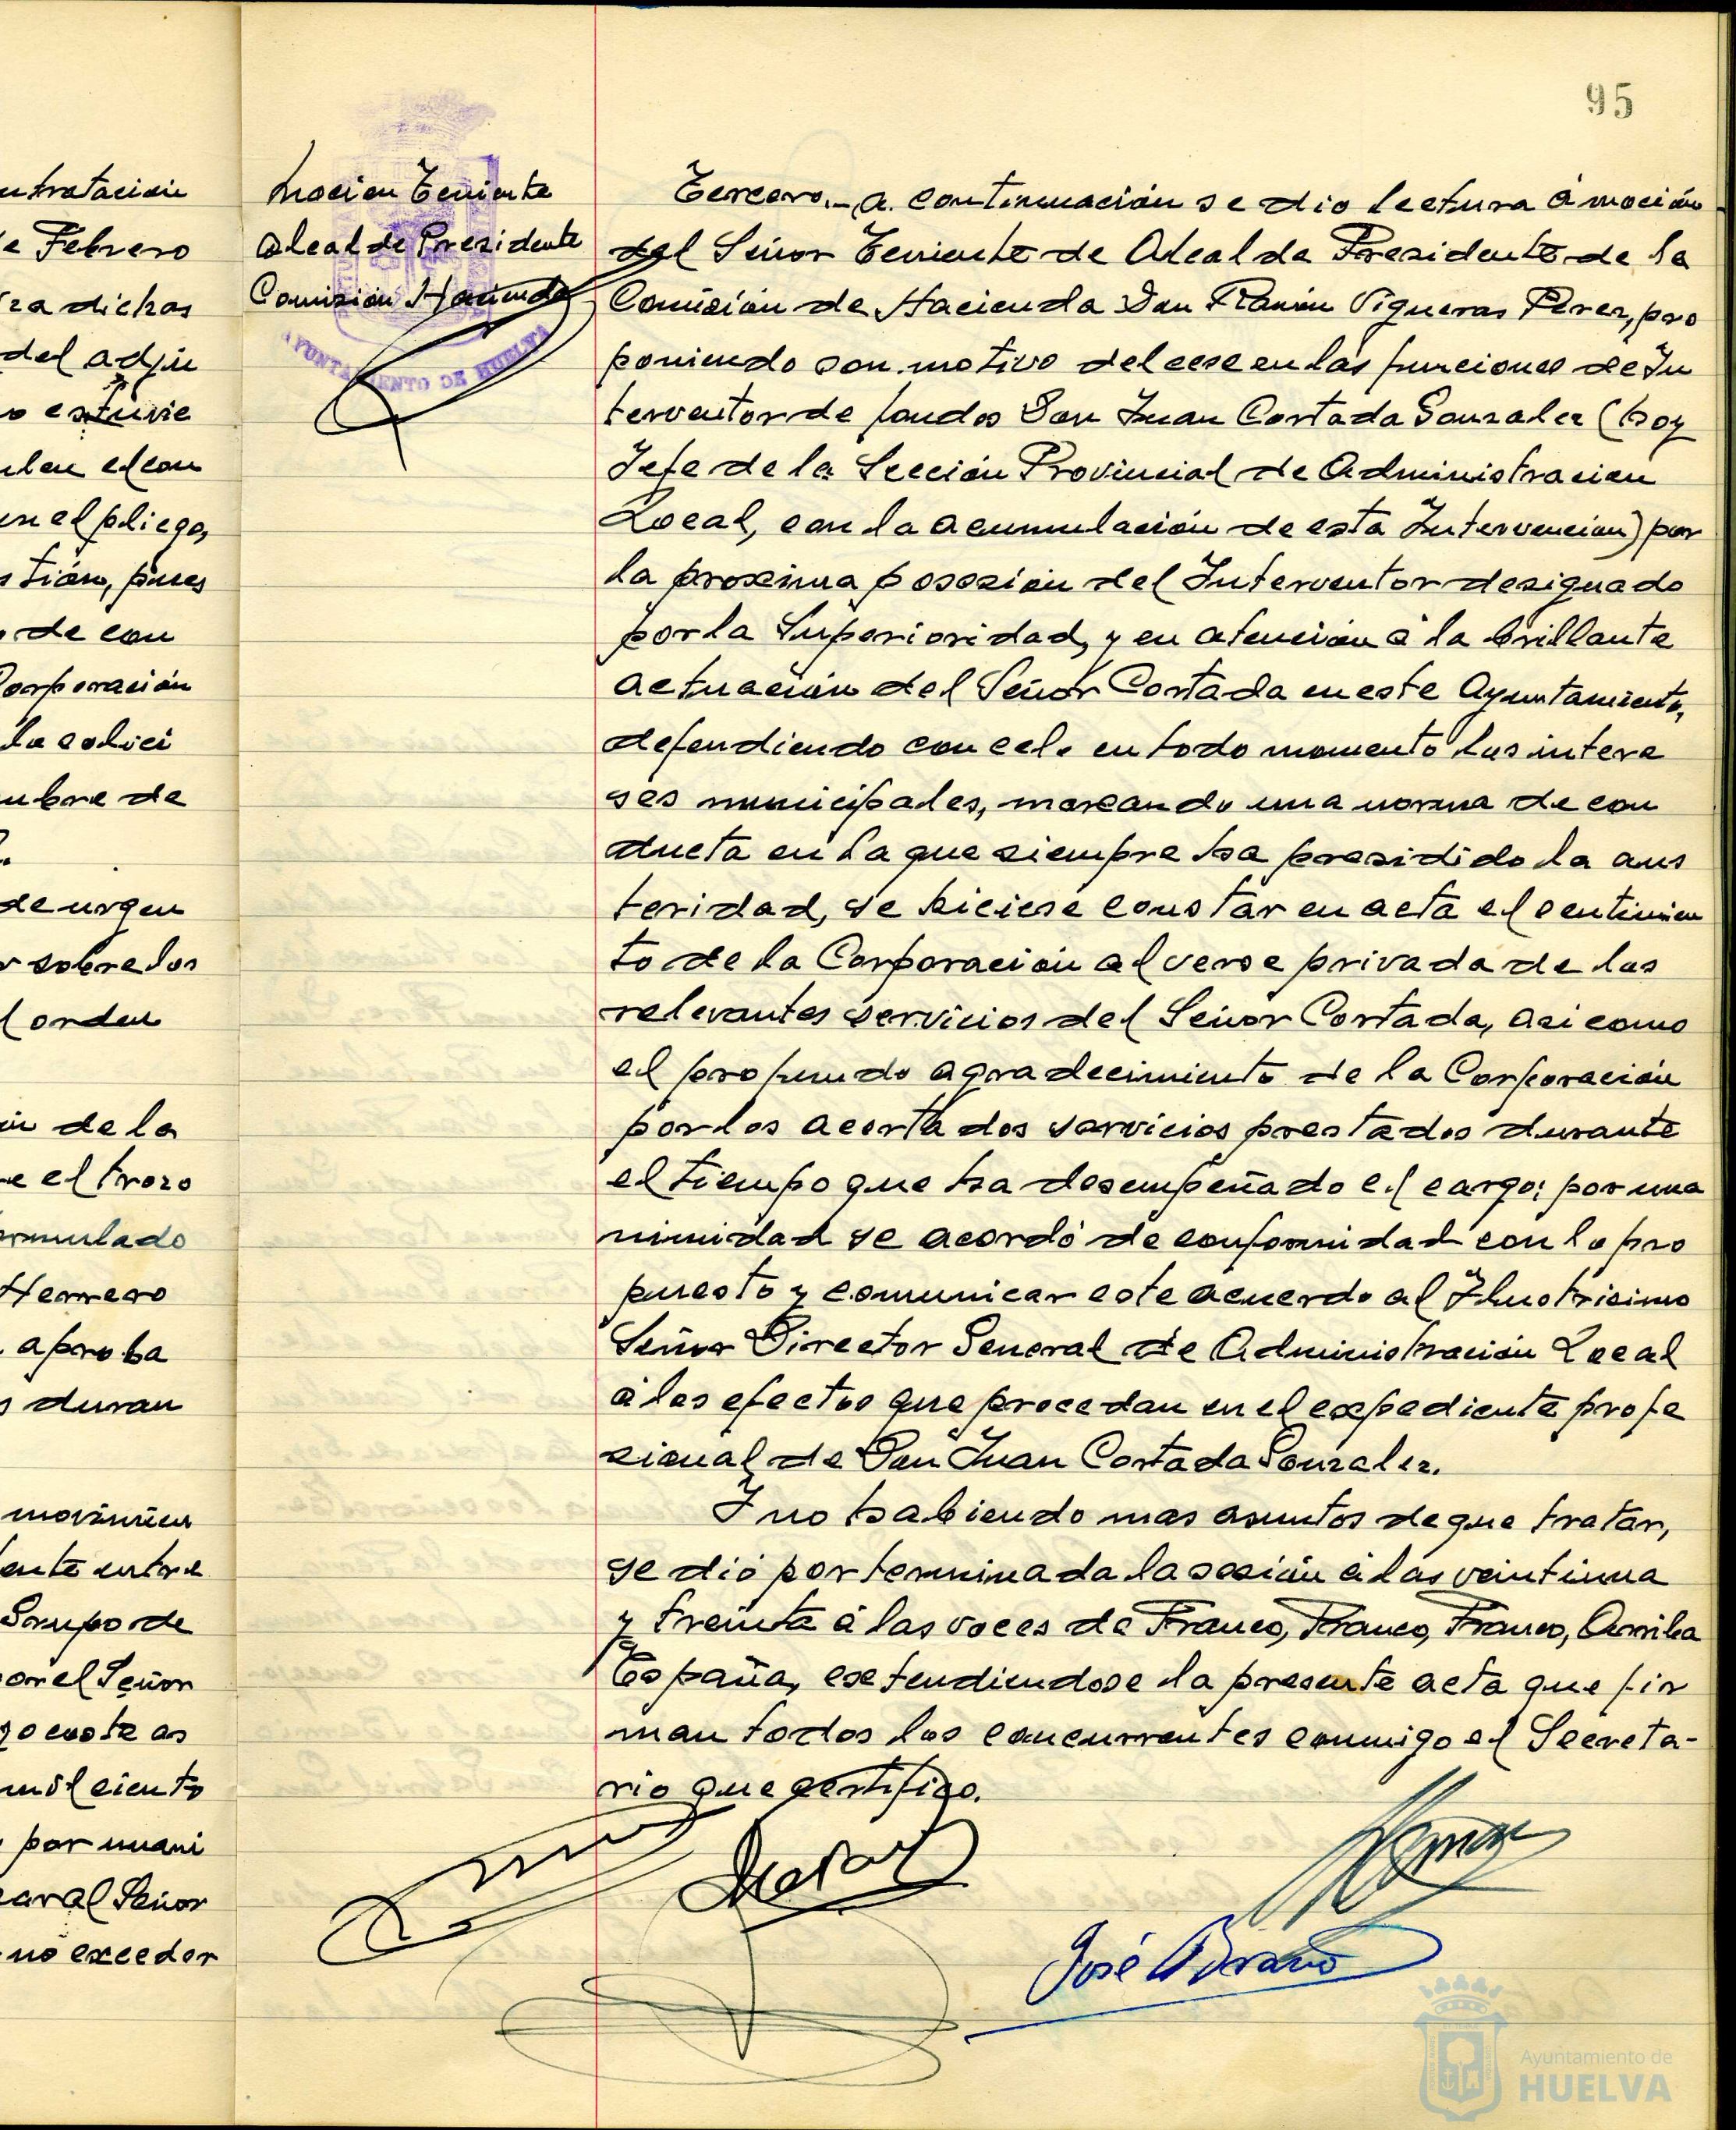 95
ntratacion
e Febrero
ra dichas
del adju
o estuvie
ulen el con
en el pliego,
s tión, pues
de con
Corporación
la solici
mbre de
de urgen
r sobre los
l orden
in de la
e el trozo
ormulado
Herrero
aproba
s duran
movimien
ente entre
Grupo de
or el Señor
mil ciento
por unani
Señor
no exceder
Mocion Teniente
Alcalde Presidente
Comisión Hacienda
AYUNTAMIENTO DE HUELVA
Tercero.- A continuación se dio lectura á moción
del Señor Teniente de Alcalde Presidente de la
Comisión de Hacienda Don Ramón Vigueras Perez, pro
poniendo con motivo del cese en las funciones de In
terventor de fondos Don Juan Cortada Gonzalez (hoy
Jefe de la Sección Provincial de Administracion
Local, con la acumulación de esta Intervencion) por
la proxima posesión del Interventor designado
por la Superioridad, y en atención á la brillante
actuación del Señor Cortada en este Ayuntamiento,
defendiendo con celo en todo momento los intere
ses municipales, marcando una norma de con
ducta en la que siempre ha presidido la aus
teridad, se hiciese constar en acta el sentimien
to de la Corporación al verse privada de los
relevantes servicios del Señor Cortada, asi como
el profundo agradecimiento de la Corporación
por los acertados servicios prestados durante
el tiempo que ha desempeñado el cargo; por una
nimidad se acordó de conformidad con lo pro
puesto y comunicar este acuerdo al Ilustrisimo
Señor Director General de Administración Local
á los efectos que procedan en el expediente profe
sional de Don Juan Cortada Gonzalez.
Y no habiendo mas asuntos de que tratar,
se dió por terminada la sesión á las veintiuna
y treinta á las voces de Franco, Franco, Franco, Arriba
España, extendiendose la presente acta que fir
man todos los concurrentes conmigo el Secreta-
rio que certifico.
José
Ayuntamiento de
HUELVA